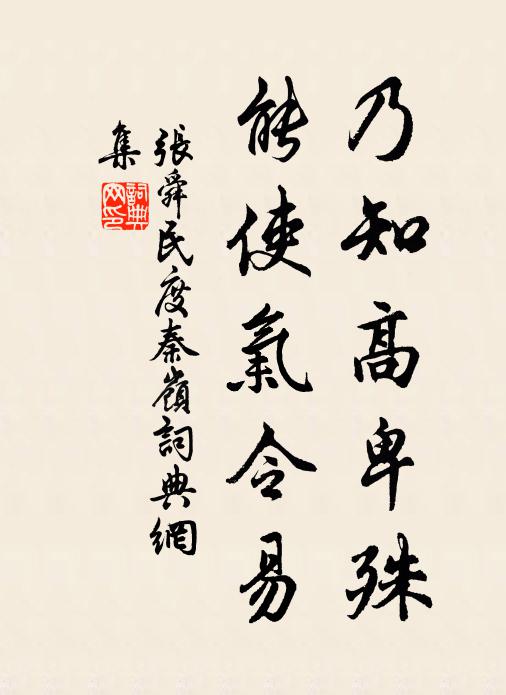 乃知高卑殊
能使氣令易
張舜民度秦嶺詞典網
集
詞典
网印